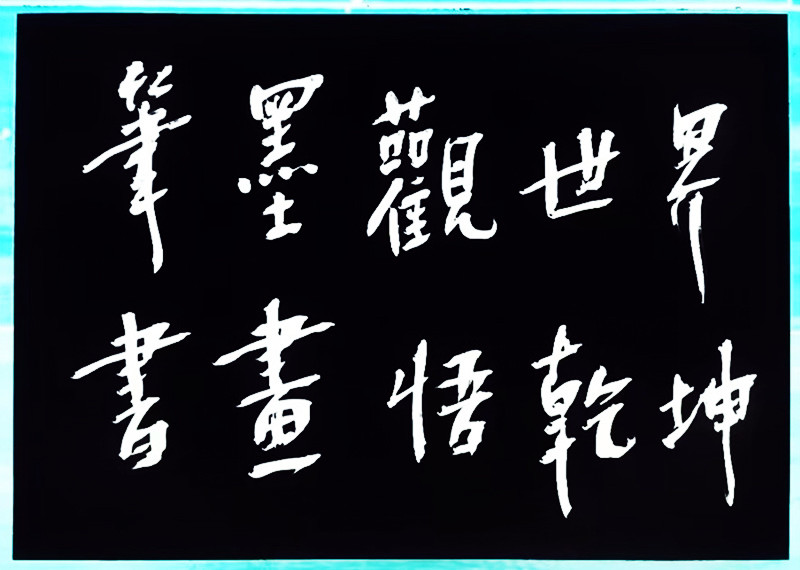 筆墨觀世界
書畫悟乾坤